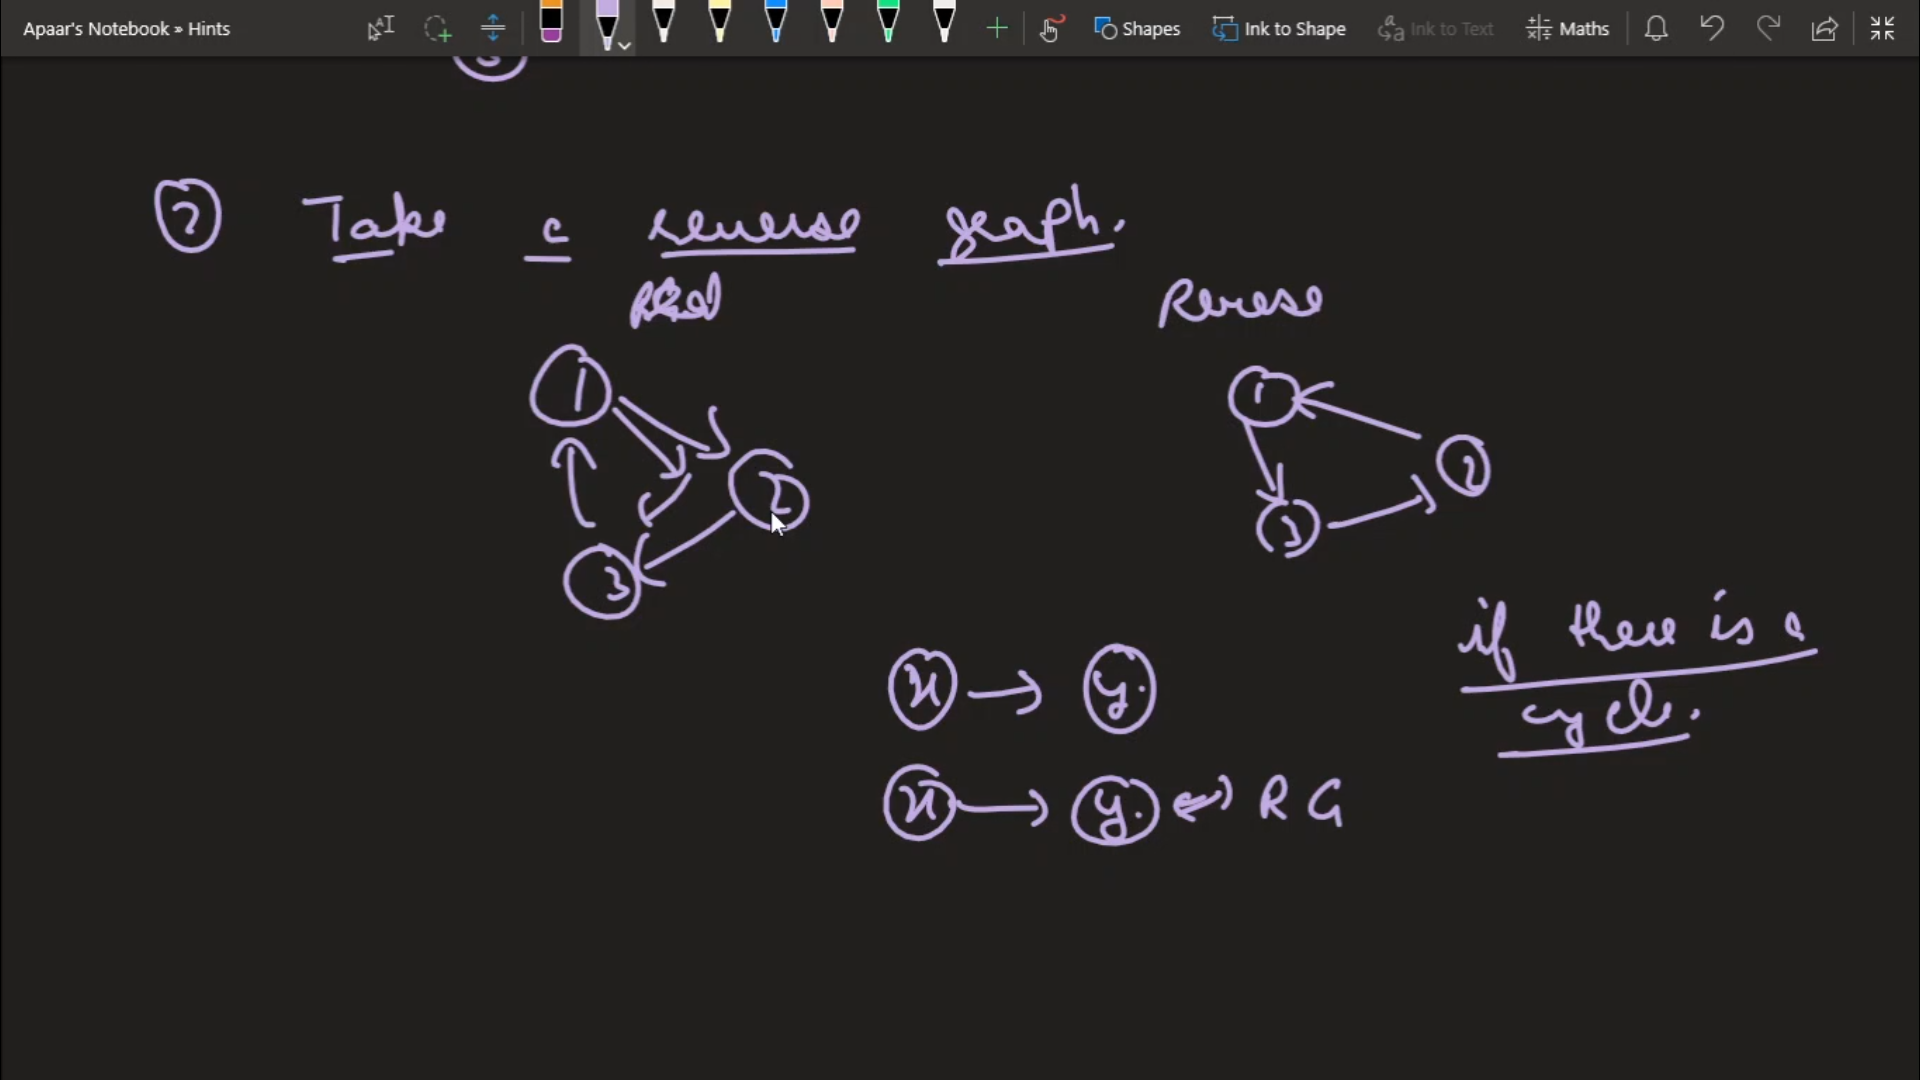 Apaar's Notebook » Hints
Shapes
Ink to Shape
Ink to Text
Maths
2 Take a reverse graph.
Real
Reverse
1
1
2
2
3
3
if there is a
cycle.
x → y
x → y ↔ R G